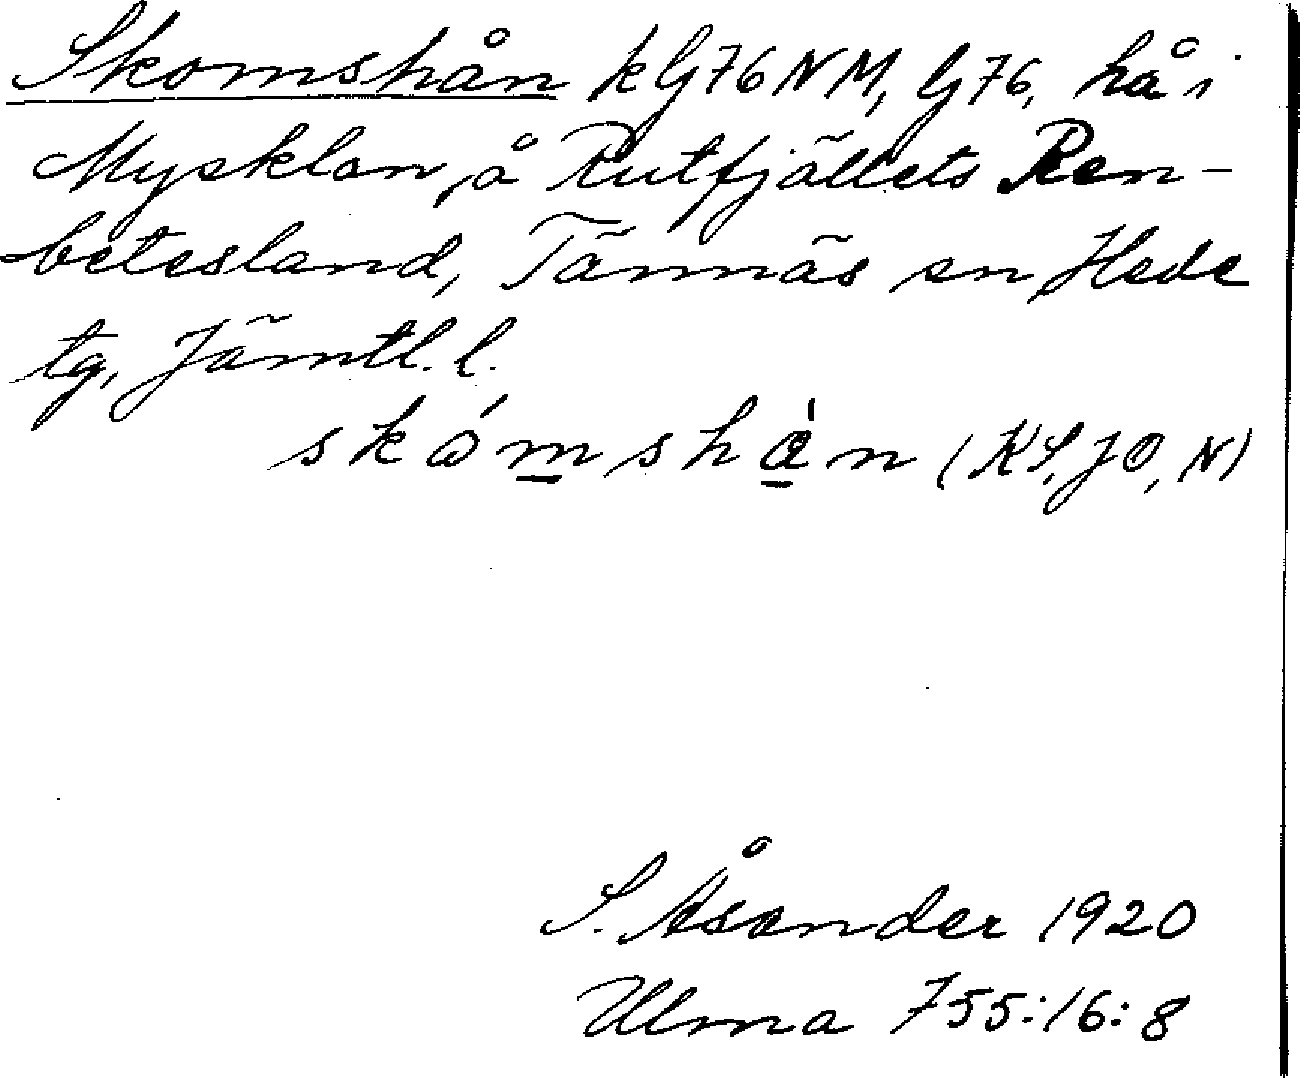 Skomshån kG76NM, G76, hå i
Mysklan, å Rutfjällets Ren-
betesland, Tännäs sn, Hede
tg, Jämtl. l.
skómshàn (KS, JO, N)
S. Åsander 1920
Ulma 755:16:8